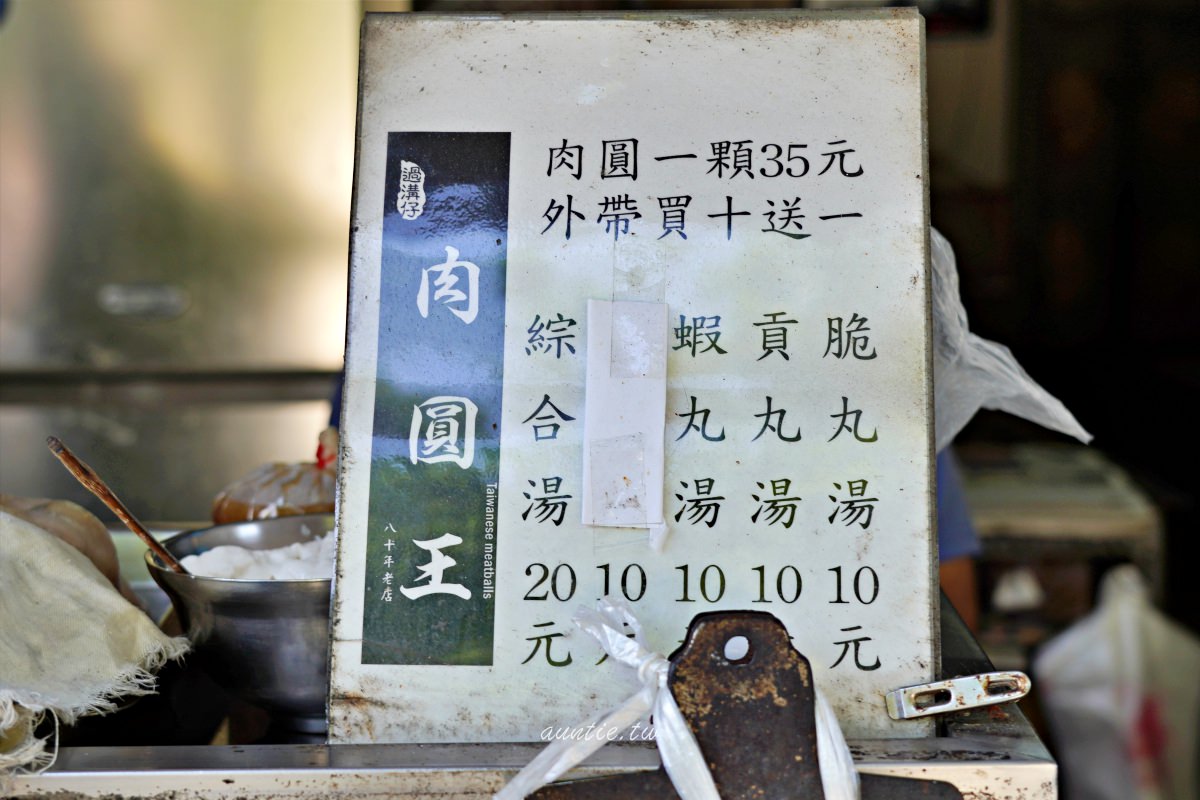 肉圓一顆35元
外帶買十送一
脆丸湯10元
貢丸湯10
蝦丸湯10
10
綜合湯20元
過溝仔
肉圓王
Taiwanese meatballs
八十年老店
auntie.tw